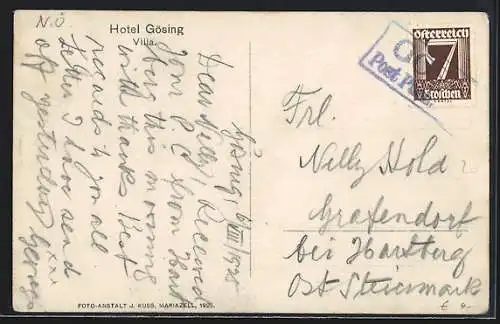 N.Ö.
Hotel Gösing
Villa.
Gösing, 6/VIII/1928
Dear Nelly, Received
your P.C. from Hart
berg this morning
with thanks. Best
records to you all
Letter I have send
off yesterday George
xxx
FOTO-ANSTALT J. KUSS, MARIAZELL, 1925.
Post
Österreich
7
Groschen
Frl.
Nelly Hold
Grafendorf
bei Hartberg
Ost Steiermark